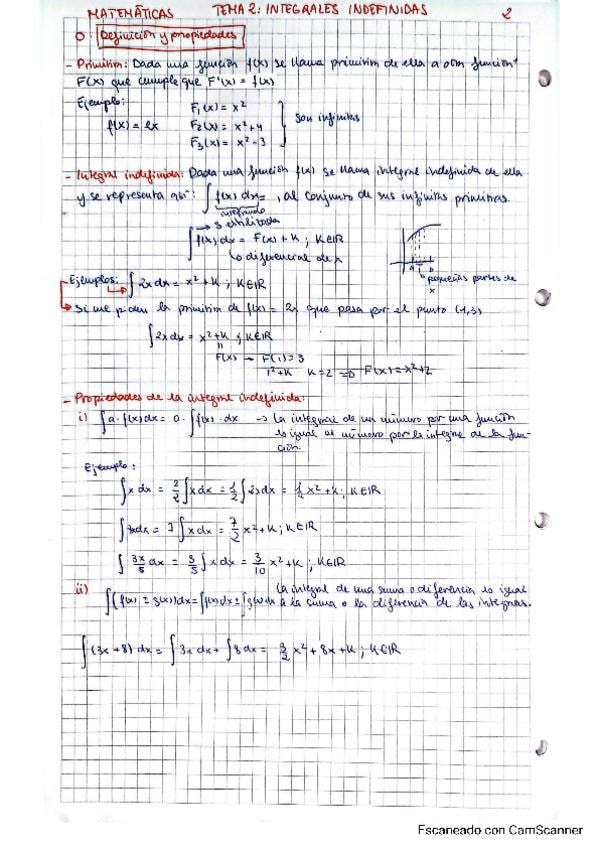 MATEMÁTICAS TEMA 2: INTEGRALES INDEFINIDAS 2
0. Definición y propiedades
- Primitiva: Dada una función f(x) se llama primitiva de ella a otra función
F(x) que cumple que F'(x) = f(x)
Ejemplo:
f(x) = 2x
F₁(x) = x²
F₂(x) = x²+4
F₃(x) = x²-3
son infinitas
- Integral indefinida: Dada una función f(x) se llama integral indefinida de ella
y se representa así: ∫ f(x) dx, al conjunto de sus infinitas primitivas.
integrando
→ S estilizada
∫ f(x) dx = F(x) + K ; K∈IR
↳ diferencial de x
a b
pequeñas partes de
x
- Ejemplos: ∫ 2x dx = x² + K ; K∈IR
→ Si me piden la primitiva de f(x) = 2x que pasa por el punto (1,3)
∫ 2x dx = x² + K ; K∈IR
F(x) → F(1) = 3
1² + K K = 2 ⇒ F(x) = x² + 2
- Propiedades de la integral indefinida:
i) ∫ a · f(x) dx = a · ∫ f(x) · dx → La integral de un número por una función
es igual al número por la integral de la fun-
ción.
Ejemplo:
∫ x dx = 2/2 ∫ x dx = 1/2 ∫ 2x dx = 1/2 x² + K ; K∈IR
∫ 7x dx = 7 ∫ x dx = 7/2 x² + K ; K∈IR
∫ 3x/5 dx = 3/5 ∫ x dx = 3/10 x² + K ; K∈IR
ii) La integral de una suma o diferencia es igual
∫ (f(x) ± g(x)) dx = ∫ f(x) dx ± ∫ g(x) dx a la suma o la diferencia de las integrales.
∫ (3x + 8) dx = ∫ 3x dx + ∫ 8 dx = 3/2 x² + 8x + K ; K∈IR
Escaneado con CamScanner